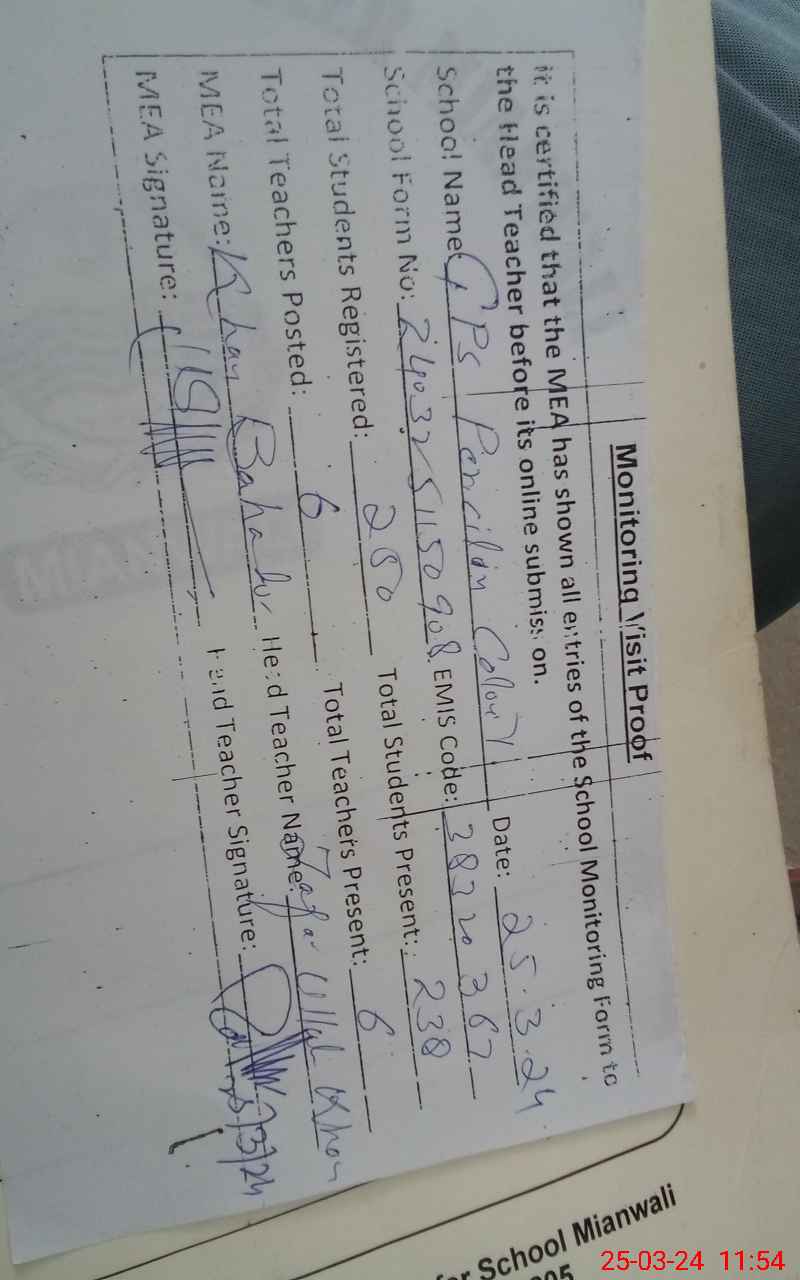 Monitoring Visit Proof
It is certified that the MEA has shown all entries of the School Monitoring Form to
the Head Teacher before its online submission.
School Name: GPS Colony Date: 25.3.24
School Form No: EMIS Code: 38320367
Total Students Registered: 250 Total Students Present: 238
Total Teachers Posted: 6 Total Teachers Present: 6
MEA Name: Khan Bahadur Head Teacher Name: Zafar Ullah Khan
MEA Signature: Head Teacher Signature:
School Mianwali
25-03-24 11:54